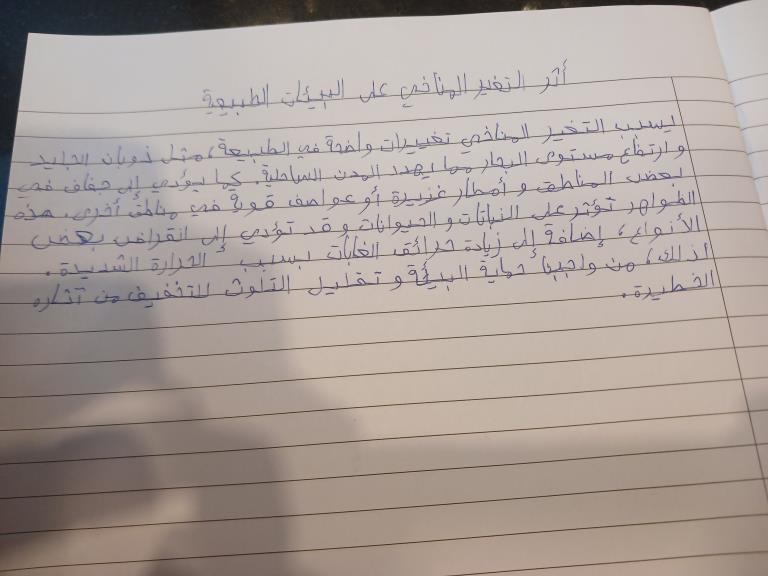 أثر التغير المناخي على البيئات الطبيعية
يسبب التغير المناخي تغييرات واضحة في الطبيعة، مثل ذوبان الجليد
و ارتفاع مستوى البحار مما يهدد المدن الساحلية. كما يؤدي إلى جفاف في
بعض المناطق و أمطار غزيرة أو عواصف قوية في مناطق أخرى. هذه
الظواهر تؤثر على النباتات و الحيوانات و قد تؤدي إلى انقراض بعض
الأنواع، إضافة إلى زيادة حرائق الغابات بسبب الحرارة الشديدة.
لذلك، من واجبنا حماية البيئة و تقليل التلوث للتخفيف من آثاره
الخطيرة.